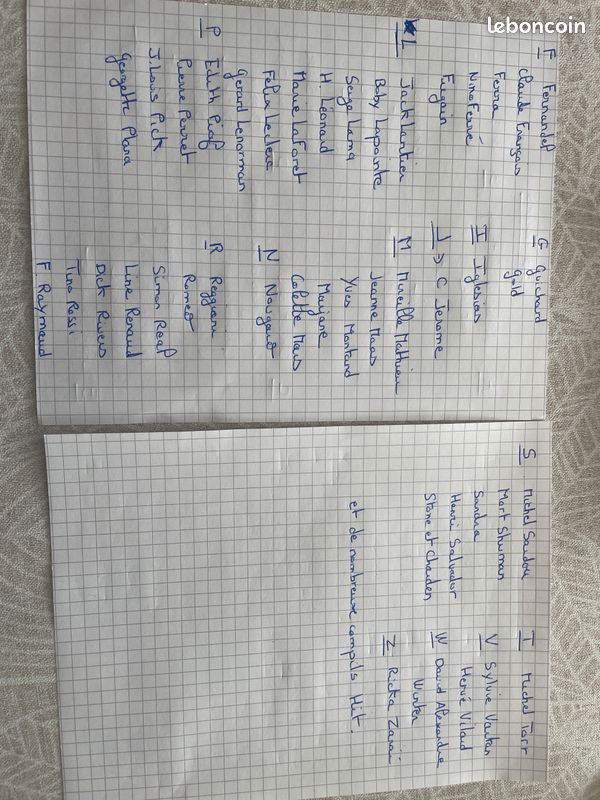 leboncoin
F Fernandel
Claude François
Ferra
Nino Ferré
Fugain
L Jack Lantier
Boby Lapointe
Serge Lama
H. Léonard
Marie Laforet
Félix Leclerc
Gerard Lenorman
P Edith Piaf
Pierre Perret
J. Louis Pick
Georgette Plana
G Guichard
Gold
I Iglesias
J => C Jerome
M Mireille Mathieu
Jeanne Maas
Yves Montand
Marjane
Colette Mars
N Nougaro
R Reggiani
Romeo
Simon
Line Renaud
Dick Rivers
Tino Rossi
F. Raynaud
S Michel Sardou
Mort Shuman
Sandra
Henri Salvador
Stone et Charden
T Michel Torr
V Sylvie Vartan
Hervé Vilard
W David Alexandre
Winter
Z Ricka Zaraï
et de nombreuse compils Hit.